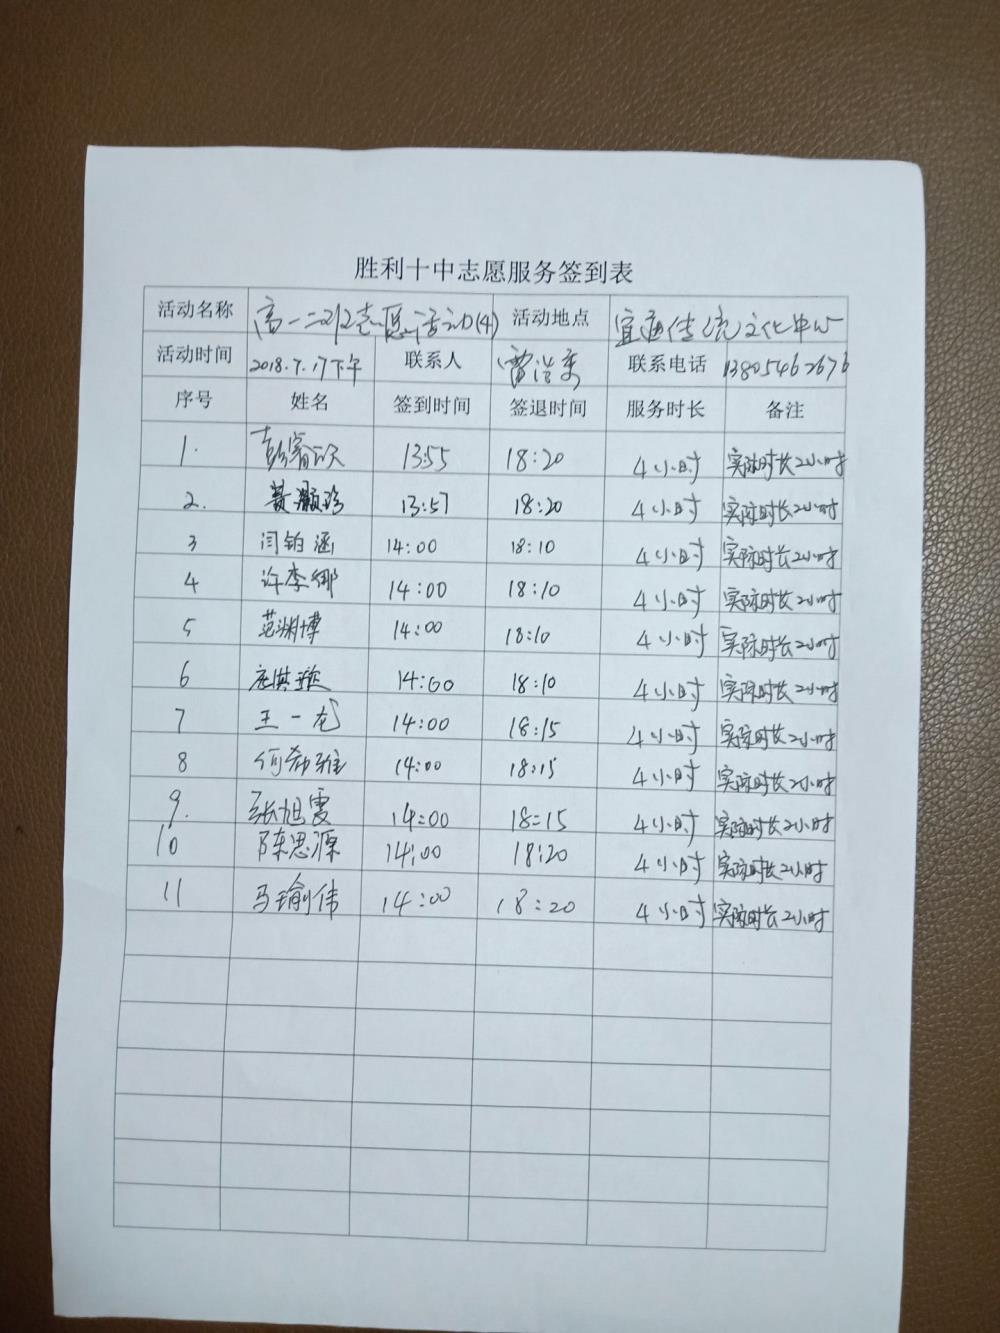 胜利十中志愿服务签到表
活动名称 高一二211志愿活动(4) 活动地点 宜通传统文化中心
活动时间 2018.7.17下午 联系人 雷浩 联系电话 13805462676
序号 姓名 签到时间 签退时间 服务时长 备注
1. 彭睿 13:55 18:20 4小时 实际时长2小时
2. 黄灏珍 13:57 18:20 4小时 实际时长2小时
3 闫铂涵 14:00 18:10 4小时 实际时长2小时
4 许李娜 14:00 18:10 4小时 实际时长2小时
5 范渊博 14:00 18:10 4小时 实际时长2小时
6 14:00 18:10 4小时 实际时长2小时
7 王一龙 14:00 18:15 4小时 实际时长2小时
8 何希雅 14:00 18:15 4小时 实际时长2小时
9. 张旭霞 14:00 18:15 4小时 实际时长2小时
10 陈思源 14:00 18:20 4小时 实际时长2小时
11 马瑜伟 14:00 18:20 4小时 实际时长2小时